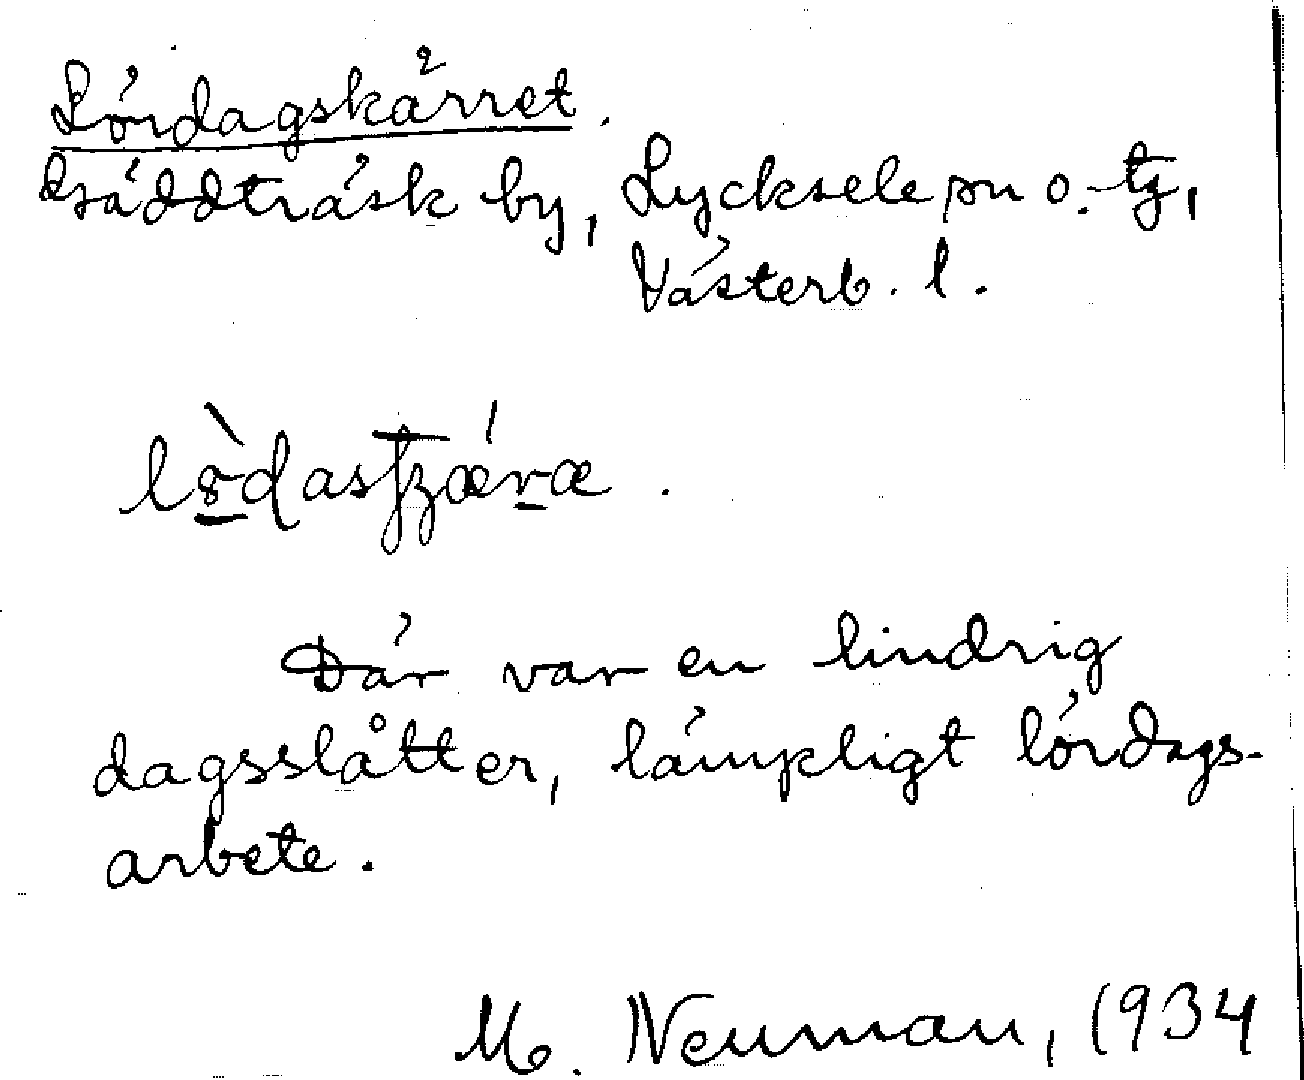 Lördagskärret.
Bräddträsk by, Lycksele sn o. tg,
Västerb. l.
Där var en lindrig
dagsslåtter, lämpligt lördags-
arbete.
M. Neuman, 1934